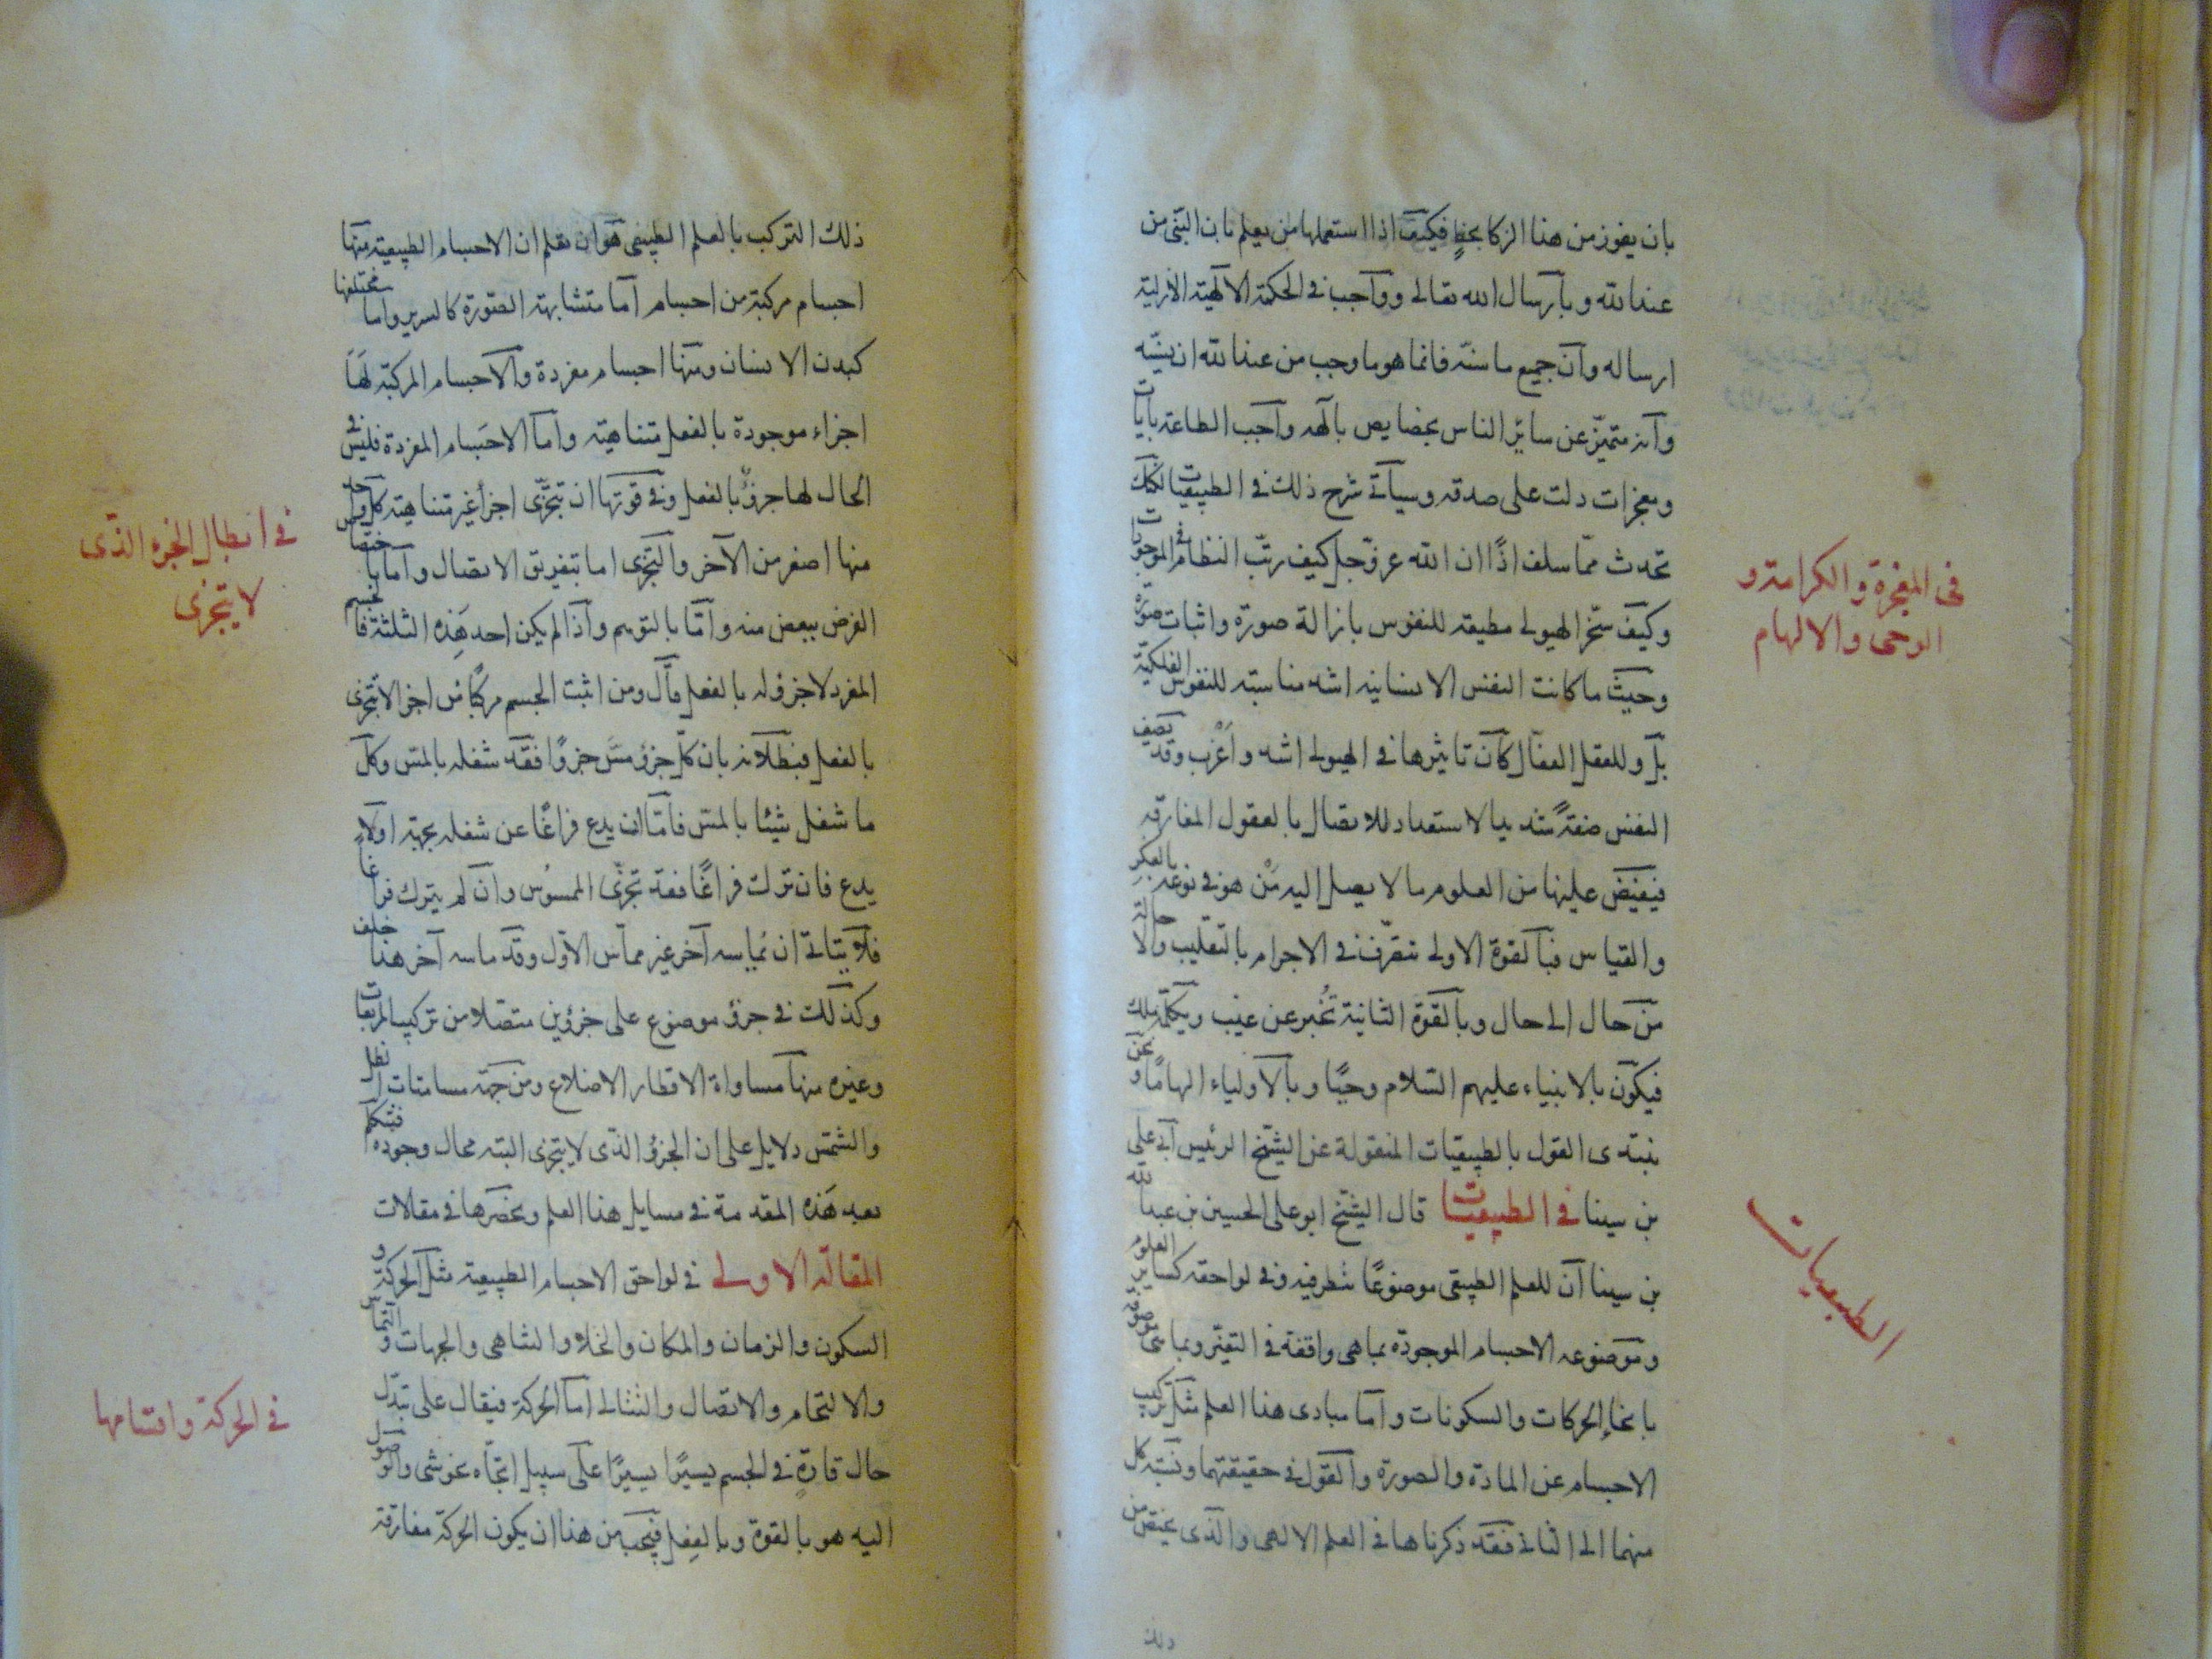 بان يفوز من هذا الزكا بحظٍ فكيف اذا استعملها من يعلم بان النبى من
عند الله و بارسال الله تعالى وواجب فى الحكمة الالهية الازلية
ارساله وان جميع ما سنّه فانما هو ما وجب من عند الله ان يسنّه
وانه متميّز عن سائر الناس بخصايص بالهه واجب الطاعة بايات
ومعجزات دلت على صدقه وسياتى شرح ذلك فى الطبيعيات لكنك
تحدث ممّا سلف اذًا ان الله عز وجل كيف رتّب النظام فى الموجودات
وكيف سخّر الهيولى مطيعة للنفوس بازالة صورة واثبات صورة
وحيث ما كانت النفس الانسانية اشد مناسبة للنفوس الفلكية
بل وللعقل الفعّال كان تاثيرها فى الهيولى اشد واغرب وقد يصفى
النفس صفة شديد الاستعداد للاتصال بالعقول المفارقة
فيفيض عليها من العلوم ما لا يصل اليه من هو فى نوعه بالفكر
والقياس فبالقوة الاولى تتصرّف فى الاجرام بالتقليب والاحالة
من حال الى حال وبالقوة الثانية تُخبر عن غيب ويكلّمه ملك
فيكون بالانبياء عليهم السلام وحيًا وبالاولياء الهامًا و نحن
نبتدى القول بالطبيعيات المنقولة عن الشيخ الرئيس ابى على
بن سينا فى الطبيعيات قال الشيخ ابو على الحسين بن عبد الله
بن سينا ان للعلم الطبيعى موضوعًا ننظر فيه وفى لواحقه كساير العلوم
وموضوعه الاجسام الموجودة بما هى واقعة فى التغيّر وبما هى موصوفة
بانحاء الحركات والسكونات واما مبادى هذا العلم مثل تركيب
الاجسام عن المادة والصورة والقول فى حقيقتهما ونسبة كل
منهما الى الثانى فقد ذكرناها فى العلم الالهى والذى يختص من
ذلك
فى المعجزة والكرامة و
الوحى والالهام
الطبيعيات
ذلك التركيب بالعلم الطبيعى هو ان تعلم ان الاجسام الطبيعية منها
اجسام مركبة من اجسام اما متشابهة الصورة كالسرير واما مختلفها
كبدن الانسان ومنها اجسام مفردة والاجسام المركبة لها
اجزاء موجودة بالفعل متناهية واما الاجسام المفردة فليس فى
الحال لها جزؤ بالفعل وفى قوتها ان تتجزّى اجزاً غير متناهية كل واحد
منها اصغر من الآخر والتجزى اما بتفريق الاتصال واما باختصاص
العرض ببعض منه وامّا بالتوهم واذا لم يكن احد هذه الثلثة فالجسم
المفرد لا جزؤ له بالفعل قال ومن اثبت الجسم مركبًا من اجزا لا تتجزى
بالفعل فبطلانه بان كل جزؤ مسّ جزؤًا فقد شغله بالمسّ وكل
ما شغل شيئا بالمسّ فامّا ان يدع فراغًا عن شغله بجهة او لا
يدع فان ترك فراغًا فقد تجزّى الممسوس وان لم يترك فراغًا
فلا يتاتى ان يماسه آخر غير مماس الاوّل وقد ماسه آخر هذا خلف
وكذلك فى جزؤ موضوع على جزؤين متصلا من تركيب المربعات
وغيره منها مساواة الاقطار الاضلاع ومن جهة مسامتات الظل
والشمس دلايل على ان الجزؤ الذى لا يتجزى البتة محال وجوده فنتكلم
بعد هذه المقدمة فى مسايل هذا العلم ونحصرها فى مقالات
المقالة الاولى فى لواحق الاجسام الطبيعية مثل الحركة و
السكون والزمان والمكان والخلا والتناهى والجهات والتماس
والالتحام والاتصال والتتالى اما الحركة فيقال على تبدّل
حال قارة فى الجسم يسيرًا يسيرًا على سبيل اتجاه نحو شى والوصول
اليه هو بالقوة وبالفعل فيجب من هذا ان يكون الحركة مفارقة
فى ابطال الجزء الذى
لا يتجزى
فى الحركة واقسامها